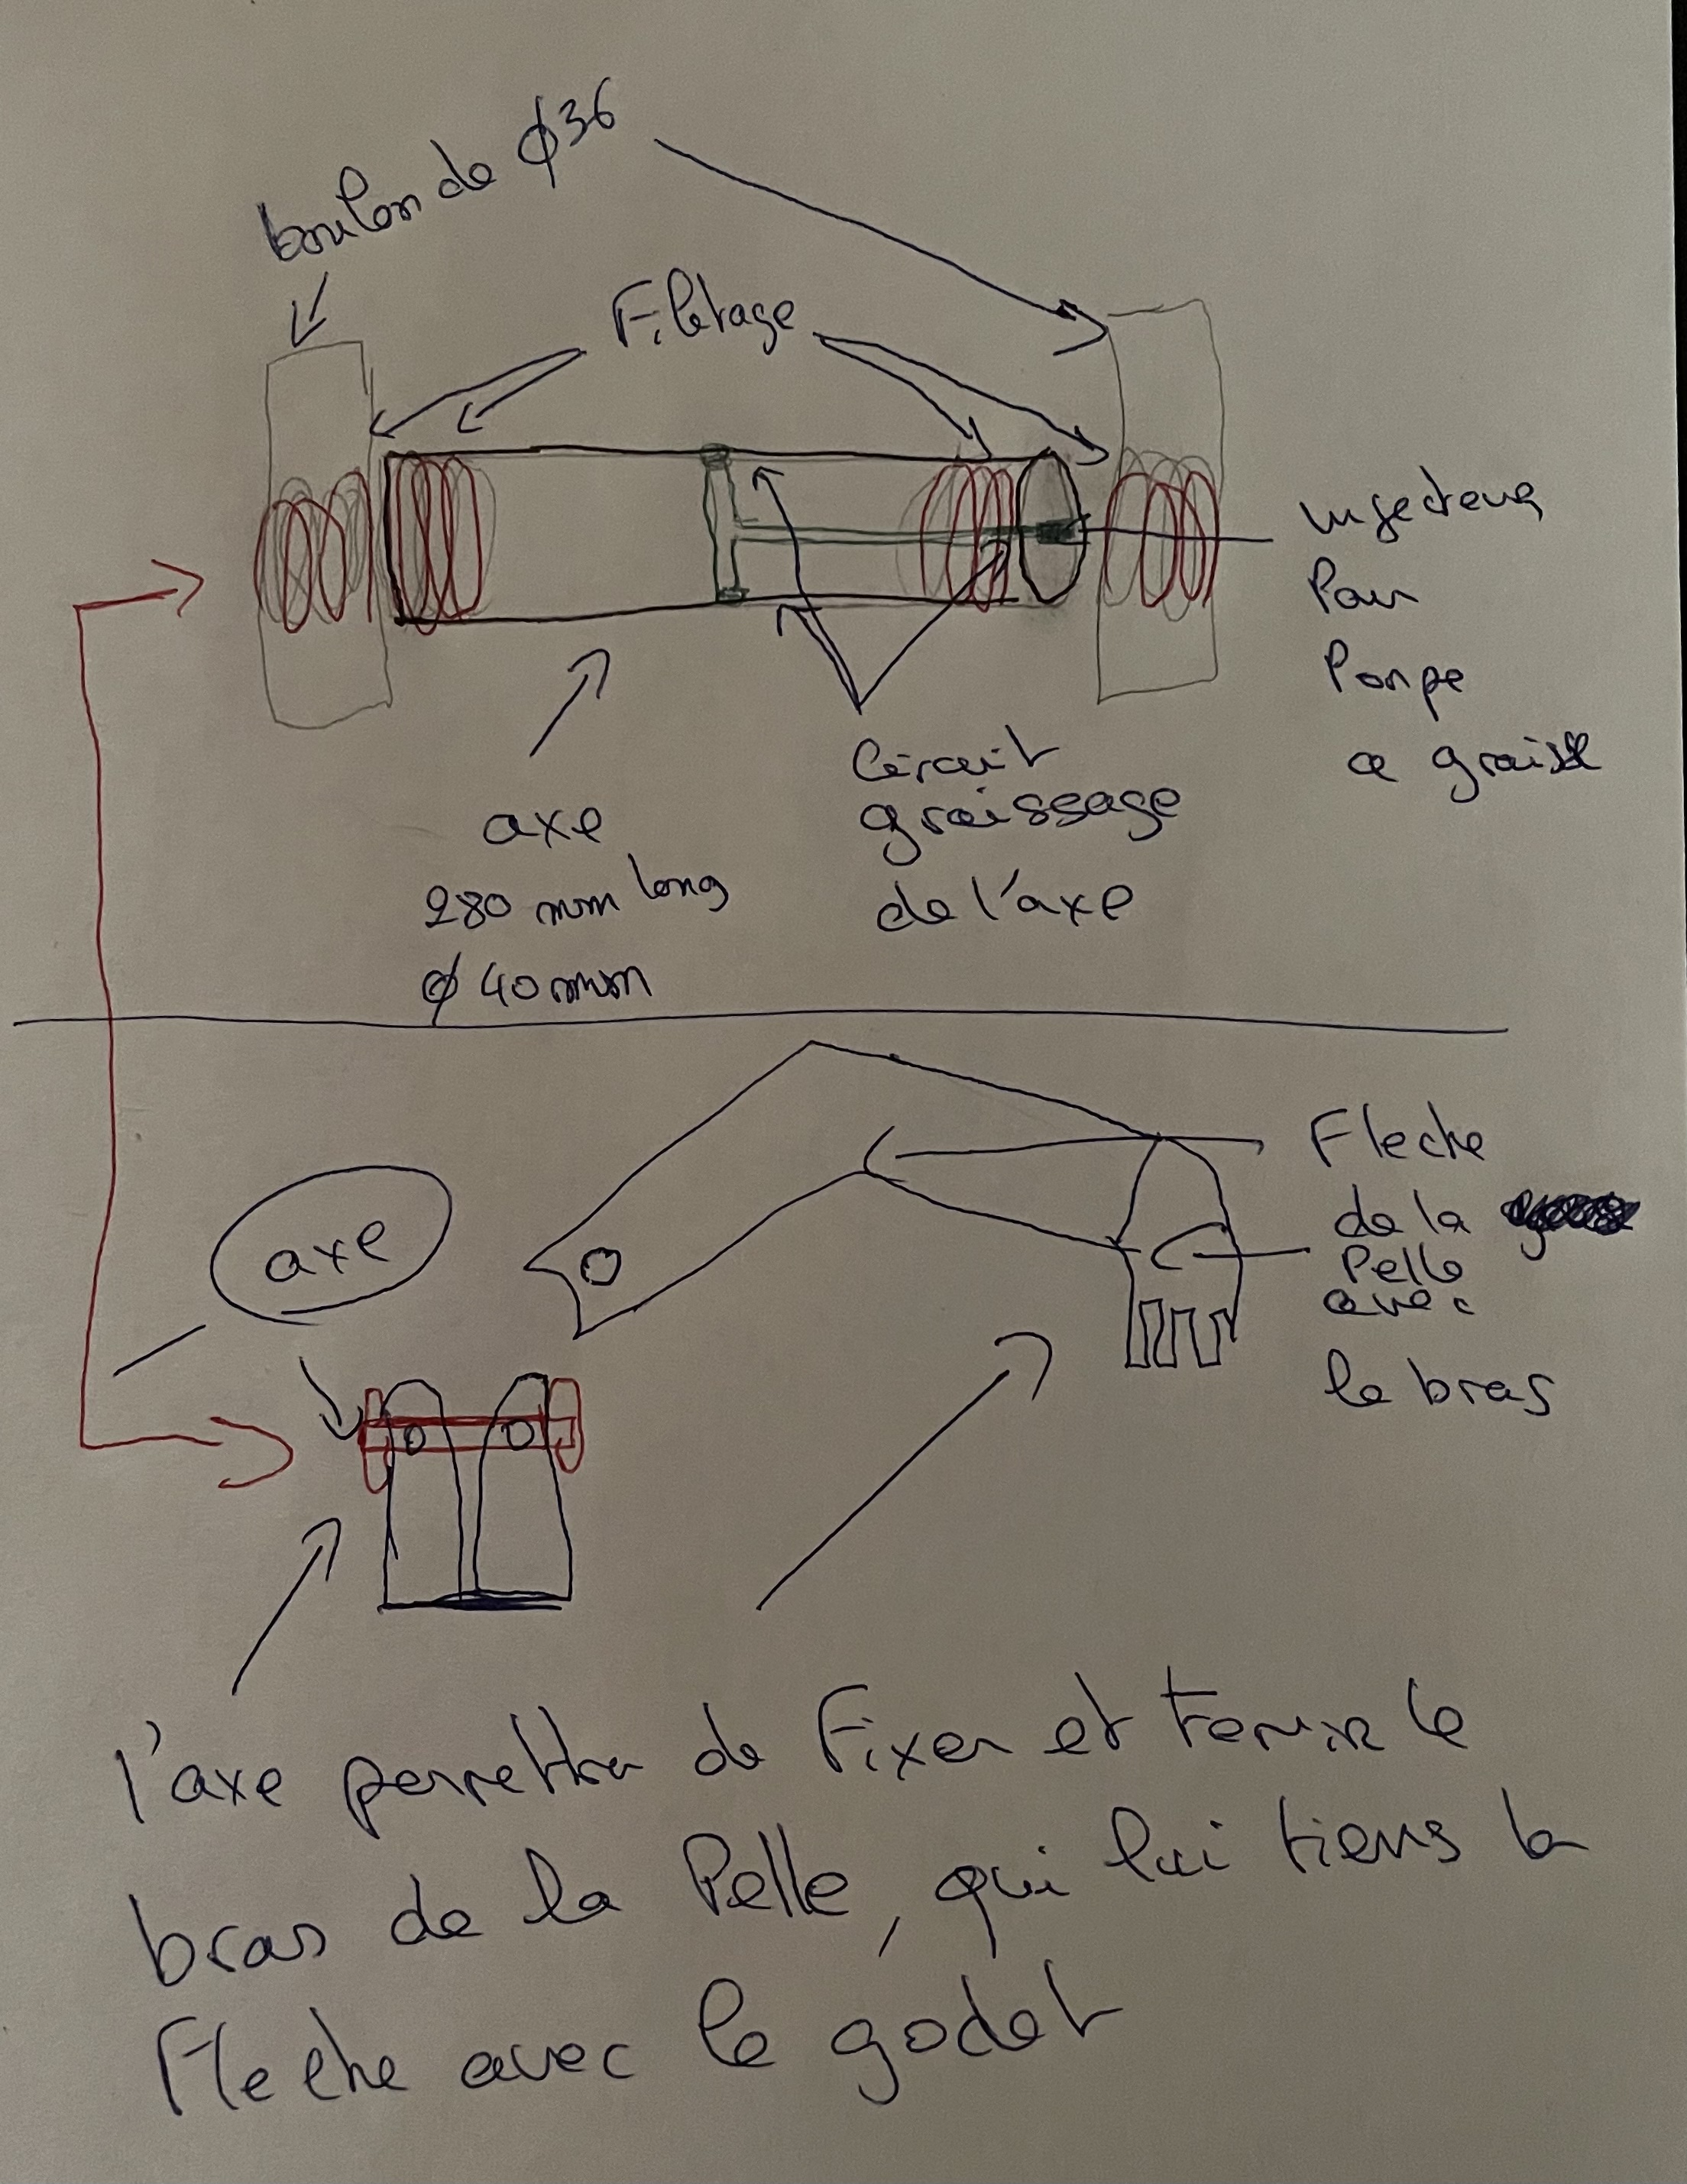 boulon de ϕ36
Filetage
injecteur
Pour
Pompe
a graisse
Circuit
graissage
de l'axe
axe
280 mm long
ϕ 40 mm
Fleche
de la
Pelle
avec
le bras
axe
l'axe permettra de Fixer et tenir le
bras de la Pelle, qui lui tiens la
Fleche avec le godet